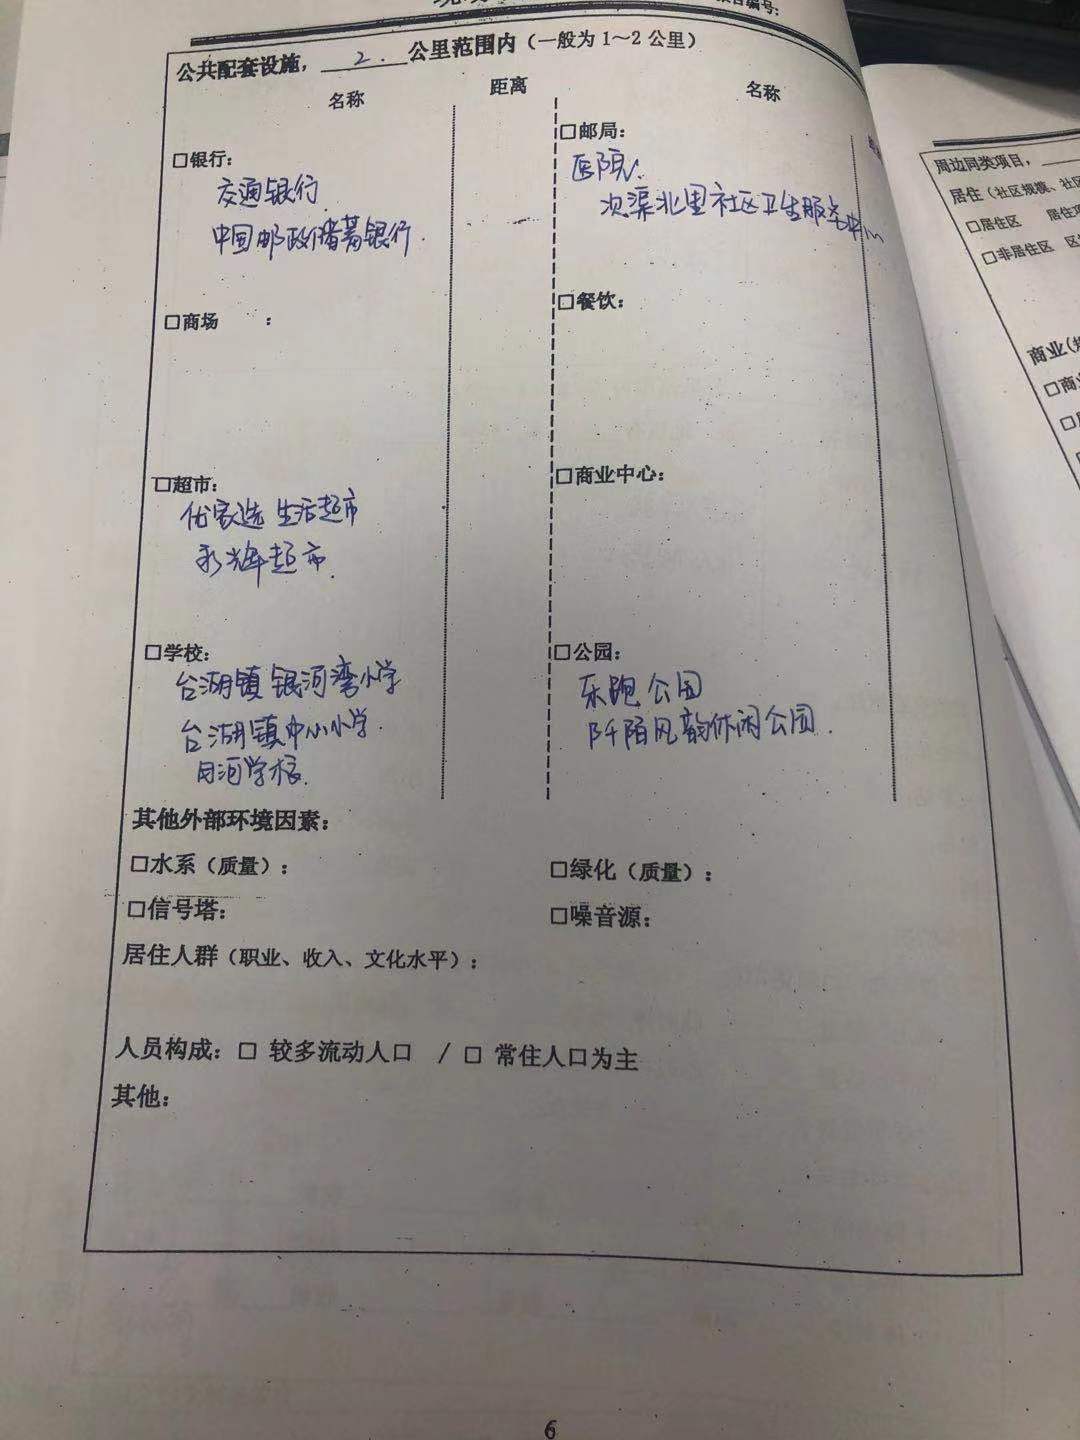 报告编号:
公共配套设施，2.公里范围内（一般为1～2公里）
名称 距离 名称
□银行:
交通银行
中国邮政储蓄银行.
□邮局:
医院:
次渠北里社区卫生服务中心
□商场 :
□餐饮:
□超市:
优家选 生活超市
永辉超市.
□商业中心:
□学校:
台湖镇银河湾小学
台湖镇中心小学.
月河学校.
□公园:
乐跑公园
阡陌风韵休闲公园.
其他外部环境因素:
□水系（质量）: □绿化（质量）:
□信号塔: □噪音源:
居住人群（职业、收入、文化水平）:
人员构成: □ 较多流动人口 / □ 常住人口为主
其他:
6
周边同类项目，
居住（社区规模、社区
□居住区 居住项
□非居住区
商业(
□商